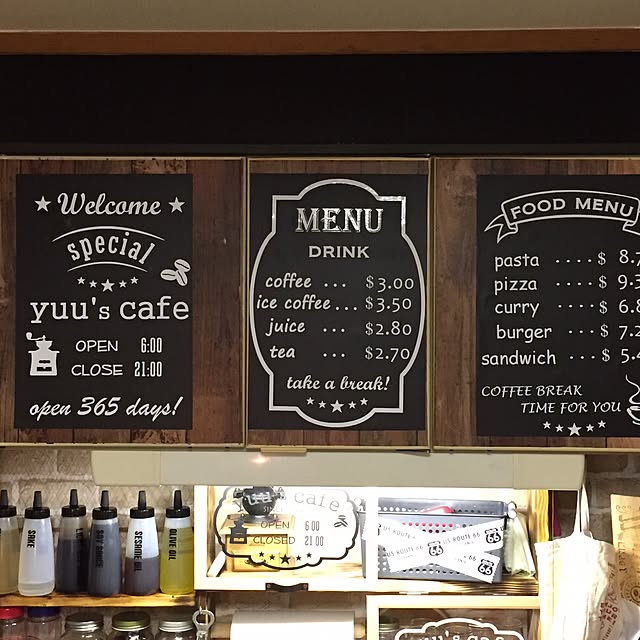 ★ Welcome ★
special
yuu's cafe
OPEN 6:00
CLOSE 21:00
open 365 days!
MENU
DRINK
coffee ... $3.00
ice coffee... $3.50
juice ... $2.80
tea ... $2.70
take a break!
FOOD MENU
pasta ····$ 8.7
pizza ····$ 9.
curry ····$ 6.
burger ···$ 7.
sandwich ···$ 5.
COFFEE BREAK
TIME FOR YOU
SAKE
SESAME OIL
OLIVE OIL
yuu's cafe
OPEN 6:00
CLOSED 21:00
US ROUTE 66